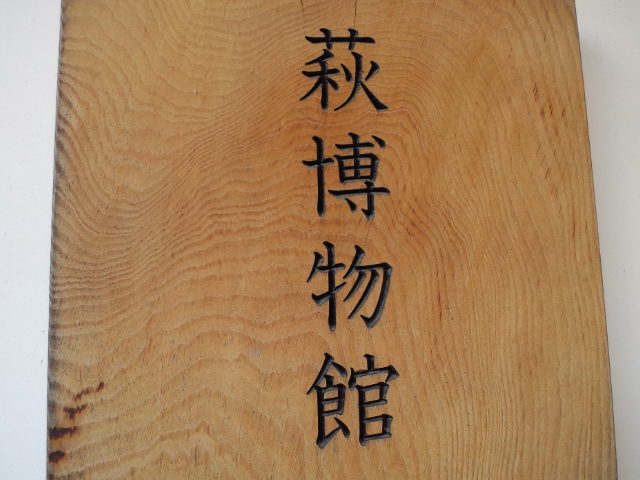 萩博物館